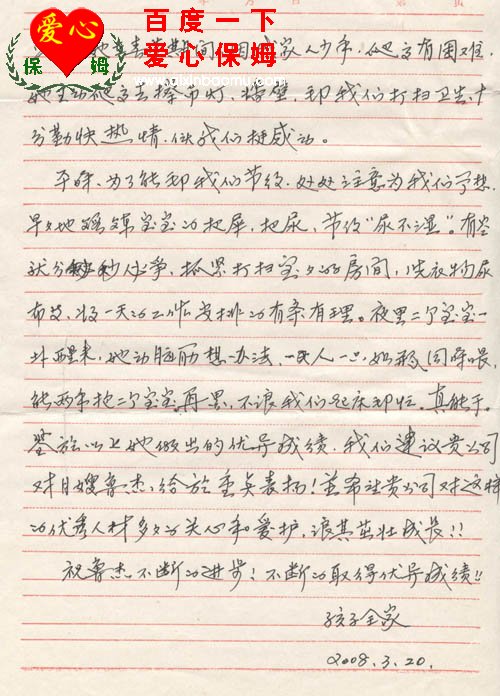 爱心
保 姆
百度一下
爱心保姆
www.aixinbaomu.com
她在春节期间,因我家人少事,她主有困难,
她主动他主去擦节灯,擦壁,帮我们打扫卫生,十
分勤快热情,似我们挺感动。
平时,为了能帮我们节约,处处注意为我们予想,
早々地锻练宝宝的把屎,把尿,节约“尿不湿”。有空
就分秒必争,抓紧打扫宝々的房间,洗衣物尿
布节,将一天的工作安排的有条有理。夜里二个宝宝一
齐醒来,她动脑筋想办法,一人一
能两条抱二个宝宝。再累,不浪我们起床帮忙。真能干。
鉴于以上她做出的优异成绩,我们建议贵公司
对月嫂鲁杰,给於重点表扬!并希望贵公司对这样
的优秀人材多々的关心和爱护,浪其茁壮成长!!
祝鲁杰不断的进步!不断的取得优异成绩!!
孩子全家
2008.3.20.